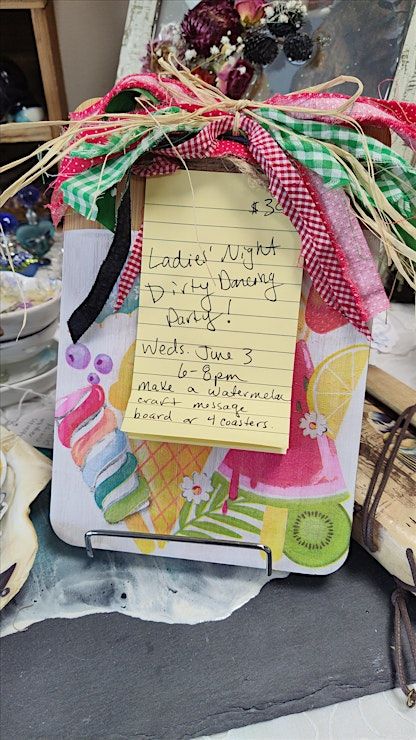 Ladies' Night
Dirty Dancing
Party!
Weds. June 3
6-8pm
make a watermelon
craft message
board or 4 coasters.